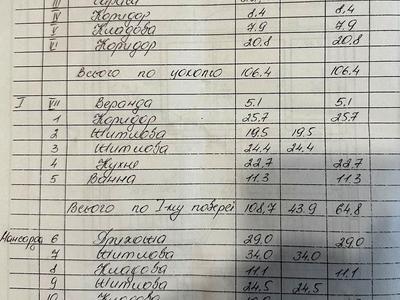 III
IV Коридор 8.4 8.4
V Кладова 7.9 7.9
VI Коридор 20.8 20.8
Всього по цоколю 106.4 106.4
I VII Веранда 5.1 5.1
1 Коридор 25.7 25.7
2 Житлова 19.5 19.5
3 Житлова 24.4 24.4
4 Кухня 22.7 22.7
5 Ванна 11.3 11.3
Всього по I-му поверсі 108.7 43.9 64.8
Мансарда 6 29.0 29.0
7 Житлова 34.0 34.0
8 Кладова 11.1 11.1
9 Житлова 24.5 24.5
10 Кладова